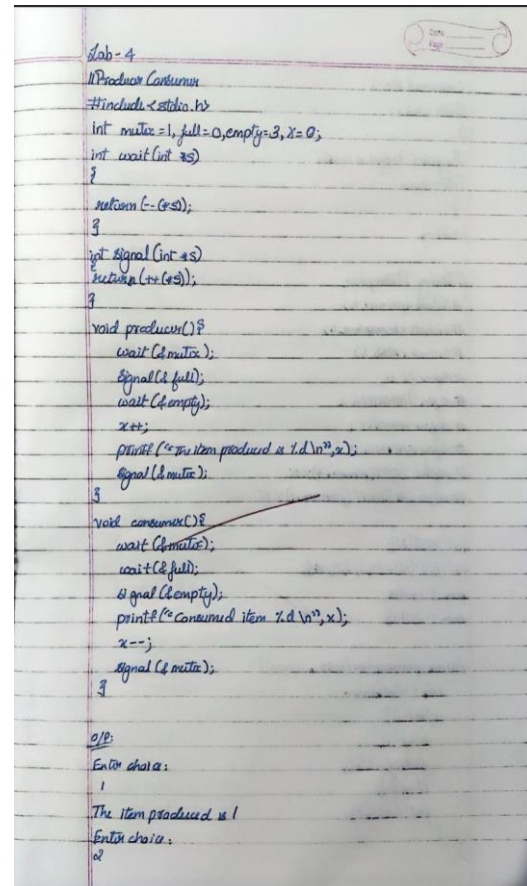 Date
Page
Lab-4
//Producer Consumer
#include <stdio.h>
int mutex = 1, full = 0, empty = 3, x = 0;
int wait (int *s)
{
return (-- (*s));
}
int signal (int *s)
{
return (++ (*s));
}
void producer() {
wait (&mutex);
signal (& full);
wait (& empty);
x++;
printf ("The item produced is %d \n", x);
signal (& mutex);
}
void consumer() {
wait (&mutex);
wait (& full);
signal (& empty);
printf ("Consumed item %d \n", x);
x--;
signal (& mutex);
}
O/P:
Enter choice:
1
The item produced is 1
Enter choice:
2